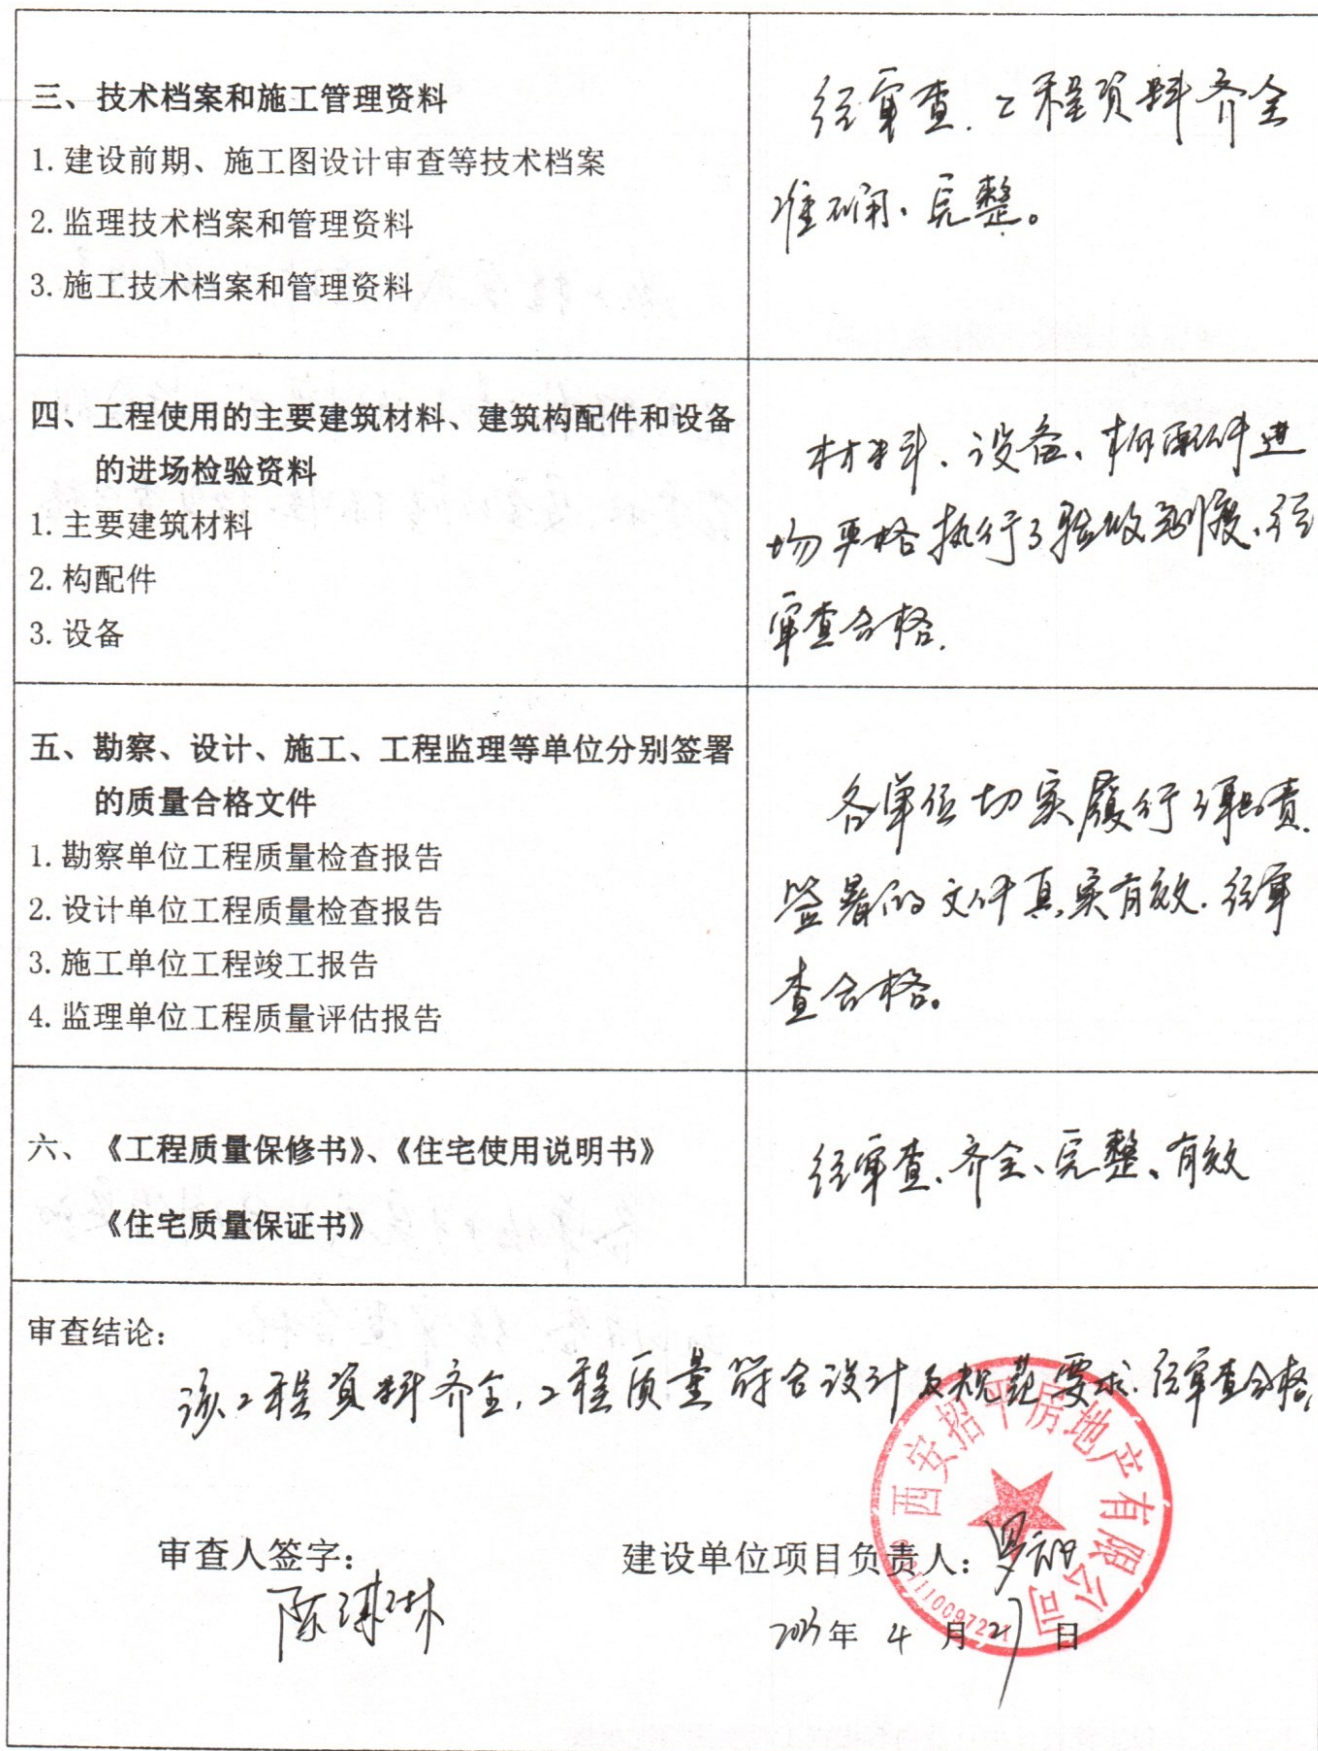 三、技术档案和施工管理资料
1. 建设前期、施工图设计审查等技术档案
2. 监理技术档案和管理资料
3. 施工技术档案和管理资料
经审查. 工程资料齐全
准确、完整。
四、工程使用的主要建筑材料、建筑构配件和设备
的进场检验资料
1. 主要建筑材料
2. 构配件
3. 设备
材料、设备、构配件进
场严格执行了验收制度.经
审查合格.
五、勘察、设计、施工、工程监理等单位分别签署
的质量合格文件
1. 勘察单位工程质量检查报告
2. 设计单位工程质量检查报告
3. 施工单位工程竣工报告
4. 监理单位工程质量评估报告
各单位切实履行了职责.
签署的文件真实有效.经审
查合格。
六、《工程质量保修书》、《住宅使用说明书》
《住宅质量保证书》
经审查、齐全、完整、有效
审查结论：
该工程资料齐全.工程质量符合设计及规范要求.经审查合格.
西安招平房地产有限公司
审查人签字：
陈
建设单位项目负责人：
年 4 月 27 日